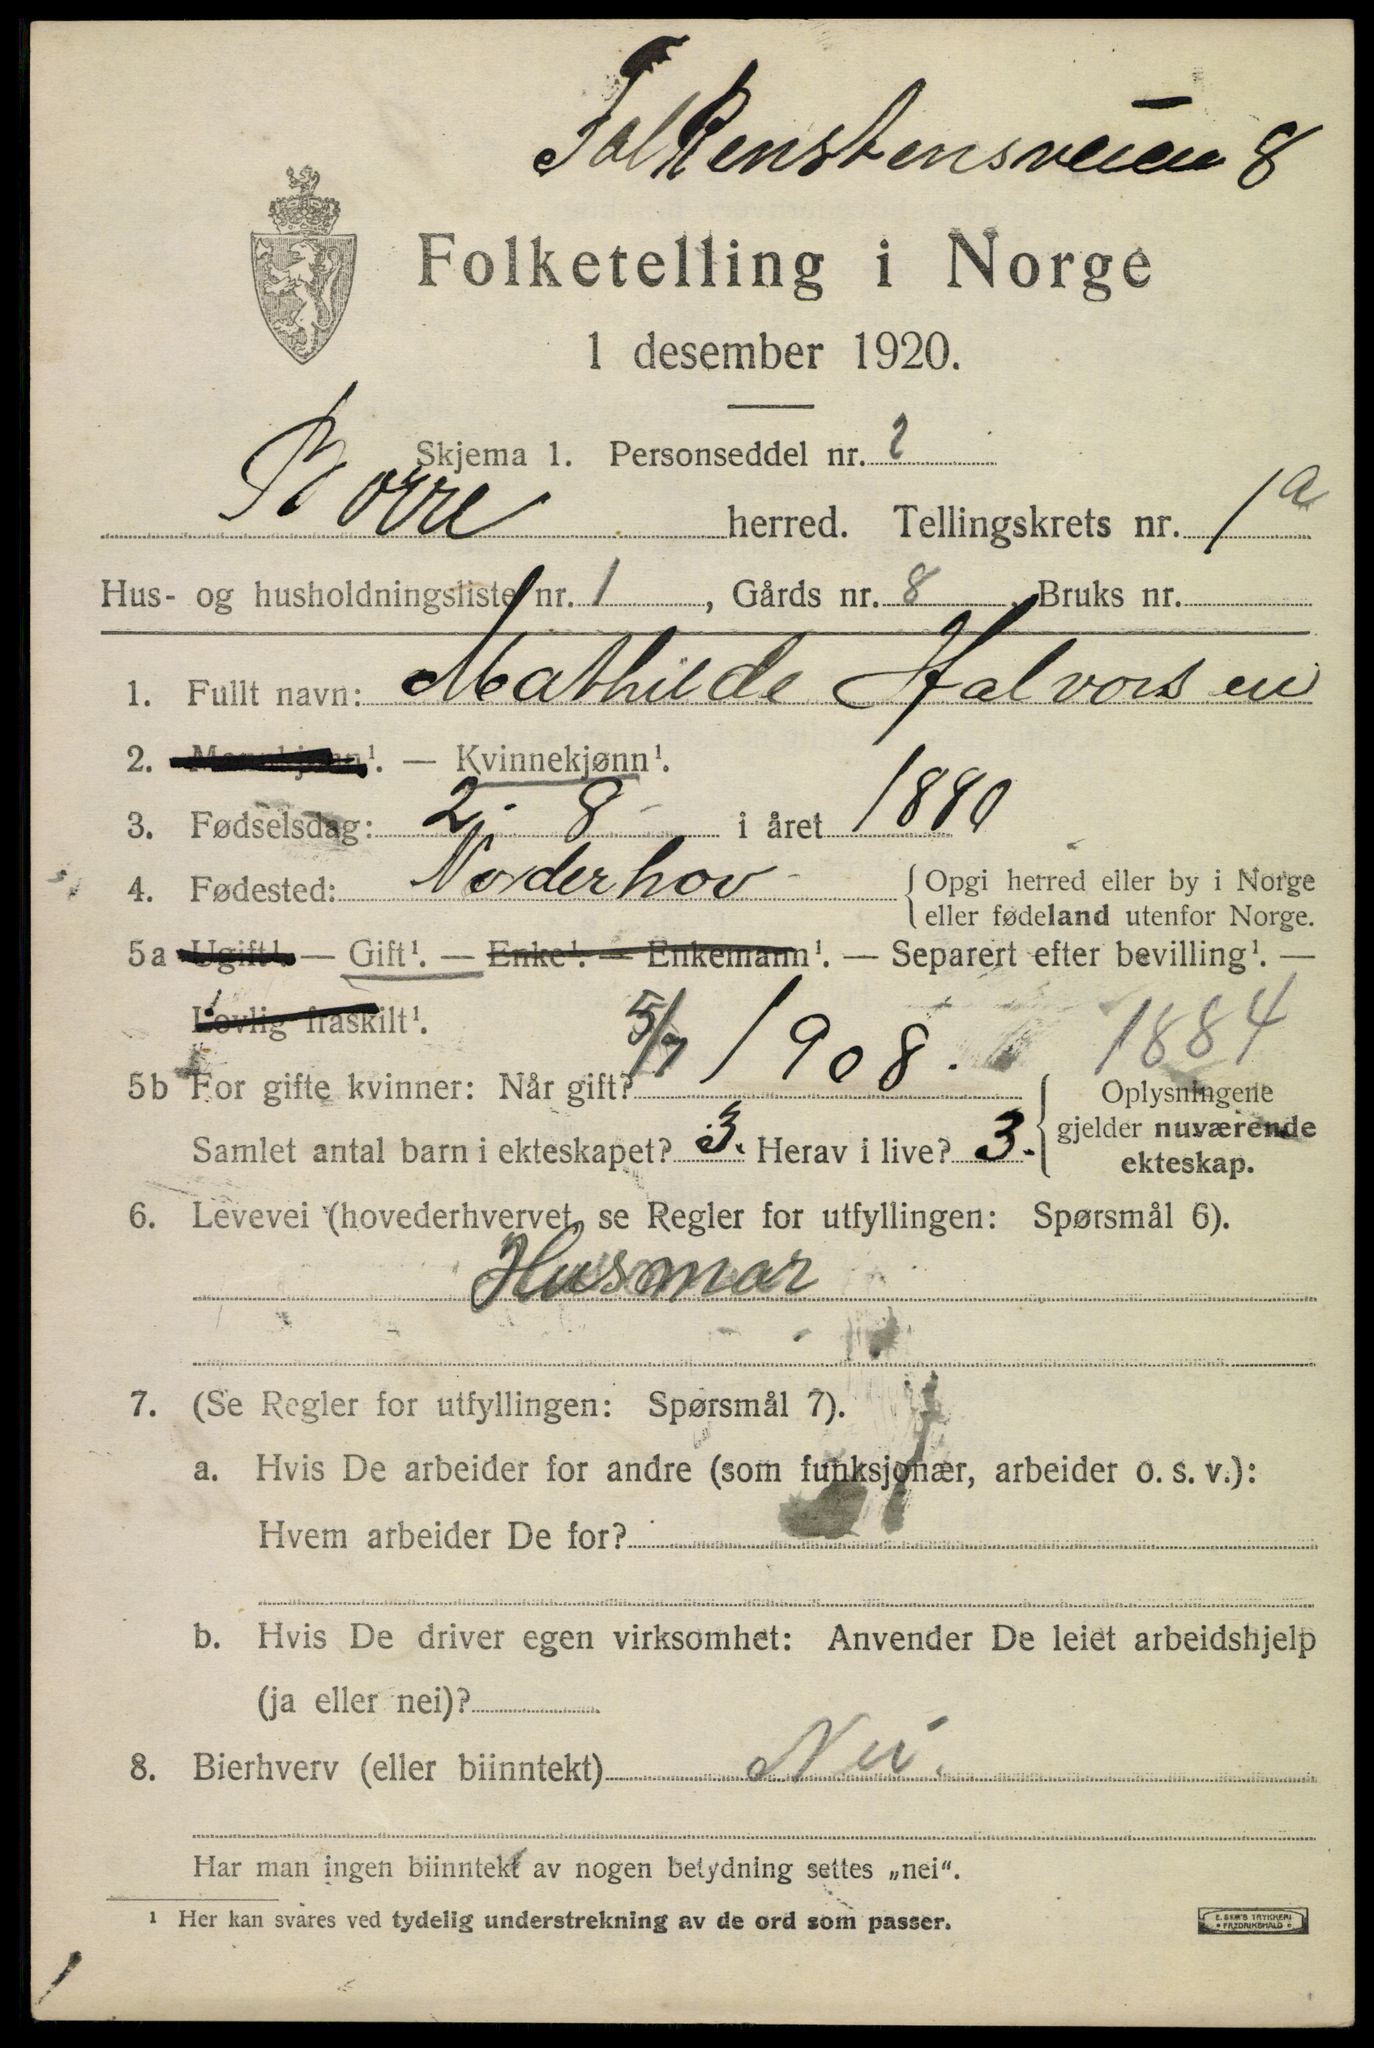 Falkenstensveien 8
Folketelling i Norge
1 desember 1920.
Skjema 1. Personseddel nr. 2
Borre herred. Tellingskrets nr. 1a
Hus- og husholdningsliste nr. 1, Gårds nr. 8. Bruks nr.
1. Fullt navn: Mathilde Halvorsen
2. Mannkjønn¹. — Kvinnekjønn¹.
3. Fødselsdag: 2 - 8 - i året 1880
4. Fødested: Noderhov - Opgi herred eller by i Norge
eller fødeland utenfor Norge.
5a Ugift¹. — Gift¹. — Enke¹. — Enkemann¹. — Separert efter bevilling¹. —
Lovlig fraskilt¹.
1884
5b For gifte kvinner: Når gift? 5/7 1908. Oplysningene
Samlet antal barn i ekteskapet? 3. Herav i live? 3. gjelder nuværende
ekteskap.
6. Levevei (hovederhvervet, se Regler for utfyllingen: Spørsmål 6).
Husmor
7. (Se Regler for utfyllingen: Spørsmål 7).
a. Hvis De arbeider for andre (som funksjonær, arbeider o. s. v.):
Hvem arbeider De for?
b. Hvis De driver egen virksomhet: Anvender De leiet arbeidshjelp
(ja eller nei)?
8. Bierhverv (eller biinntekt) Nei.
Har man ingen biinntekt av nogen betydning settes „nei“.
¹ Her kan svares ved tydelig understrekning av de ord som passer.
E. SEM'S TRYKKERI
FREDRIKSHALD